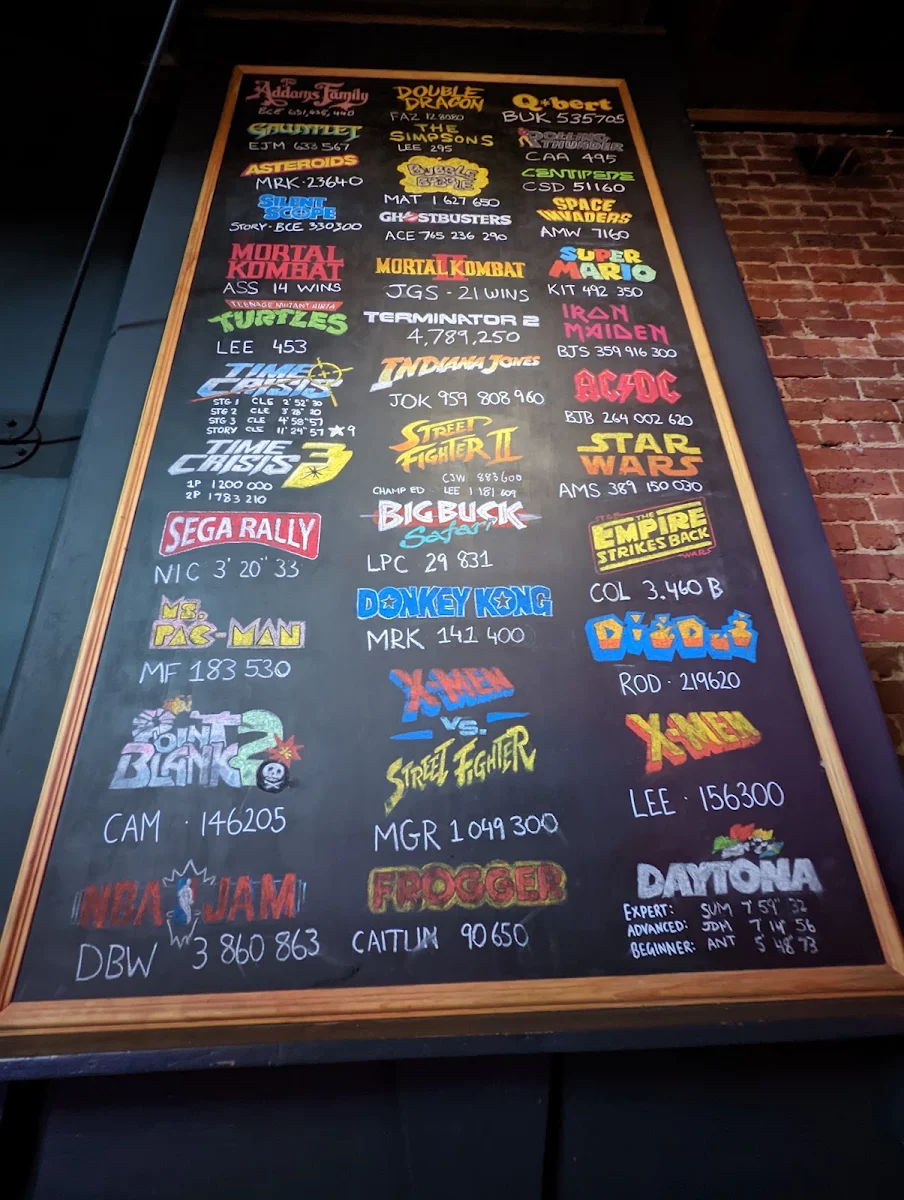 Addams Family
BCE 651,435,440
GAUNTLET
EJM 633 567
ASTEROIDS
MRK·23640
SILENT
SCOPE
STORY·BCE 330300
MORTAL
KOMBAT
ASS 14 WINS
TEENAGE MUTANT NINJA
TURTLES
LEE 453
TIME
CRISIS
STG 1 CLE 2'52"30
STG 2 CLE 3'28"20
STG 3 CLE 4'58"57
STORY CLE 11'24"57 ★9
TIME
CRISIS 3
1P 1200 000
2P 1783 210
SEGA RALLY
NIC 3'20"33
MS.
PAC-MAN
MF 183 530
POINT
BLANK 2
CAM · 146205
NBA JAM
DBW 3 860 863
DOUBLE
DRAGON
FAZ 128080
THE
SIMPSONS
LEE 295
BUBBLE
BOBBLE
MAT 1 627 650
GHOSTBUSTERS
ACE 765 236 290
MORTAL KOMBAT
II
JGS - 21 WINS
TERMINATOR 2
4,789,250
INDIANA JONES
JOK 959 808 960
STREET
FIGHTER II
CJW 883600
CHAMP ED · LEE 1 181 609
BIG BUCK
Safari
LPC 29 831
DONKEY KONG
MRK 141 400
X-MEN
VS.
STREET FIGHTER
MGR 1 049 300
FROGGER
CAITLIN 90650
Q*bert
BUK 535705
ROLLING
THUNDER
CAA 495
CENTIPEDE
CSD 51160
SPACE
INVADERS
AMW 7160
SUPER
MARIO
KIT 492 350
IRON
MAIDEN
BJS 359 916 300
AC/DC
BJB 264 002 620
STAR
WARS
AMS 389 150 030
STAR
THE
EMPIRE
STRIKES BACK
WARS
COL 3.460 B
ROD · 219620
X-MEN
LEE · 156300
DAYTONA
EXPERT: SUM 7'59"32
ADVANCED: JDM 7 14" 56
BEGINNER: ANT 5 48" 73